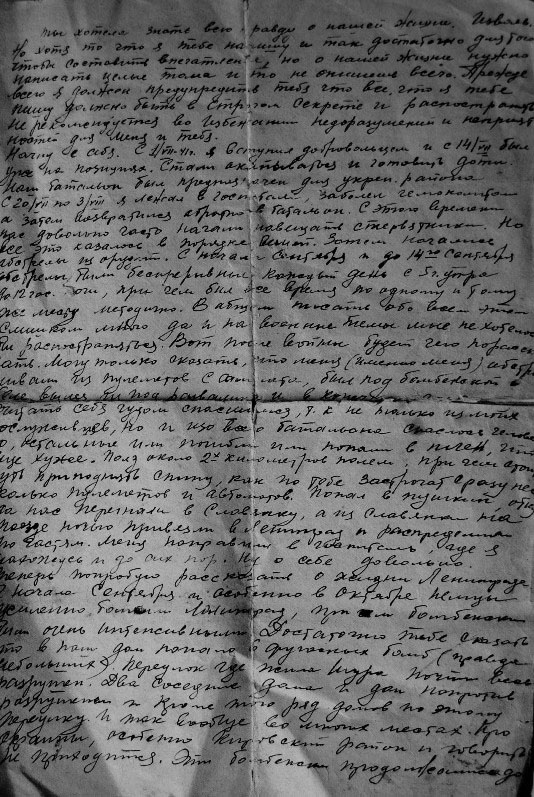 ты хотела знать всю правду о нашей жизни. Изволь.
Но хотя то что я тебе напишу и так достаточно для того
чтобы составить впечатление, но о нашей жизни нужно
написать целые тома и то не опишешь всего. Прежде
всего я должен предупредить тебя что все, что я тебе
пишу должно быть в строгом секрете и распространять
не рекомендуется во избежании недоразумений и неприят
ностей для меня и тебя.
Начну с себя. С я вступил добровольцем и с 14/VII был
уже на позициях. Стали окапываться и готовить доты.
Наш батальон был предназначен для укреп. района
С 20/VII по 3/VIII я лежал в госпитале, заболел
а затем возвратился обратно в батальон. С этого времени
нас довольно часто начали навещать стервятники. Но
все это казалось в порядке вещей. Затем начались
обстрелы из орудий. С начала Сентября и до 14го Сентября
обстрелы были беспрерывные каждый день с 5ч. утра
до 12 час. ночи, при чем бил все время по одному и тому
же месту методично. В общем писать обо всем этом
слишком много да и на военные темы мне не хотелось
бы распространяться. Вот после войны будет чего порасск
азать. Могу только сказать, что меня (именно меня) обстре
ливали из пулеметов с самолета, был под бомбежкой и
еле вылез из под развалин и в конце
считаю себя чудом спасшимся, т.к не только из моих
сослуживцев, но и изо всего батальона спаслось человек
о, остальные или погибли или попали в плен, что
еще хуже. Полз около 2х километров полем, при чем стоит
чуть приподнять спину, как по тебе застрочат сразу нес
колько пулеметов и автоматов. Попал в пушкин, отту
да нас перегнали в Славянку, а из Славянки на
поезде ночью привезли в Ленинград и распределили
по частям. Меня направили в госпиталь, где я
нахожусь и до сих пор. Ну о себе довольно.
Теперь попробую рассказать о жизни Ленинграда
С начала Сентября и особенно в Октябре немцы
усиленно бомбили Ленинград, при чем бомбежки
были очень интенсивными. Достаточно тебе сказать
что в наш дом попало фугасных бомб (правда
небольших). Переулок где жила Шура почти весь
разрушен. Два соседние дома и дом напротив
разрушены и кроме того ряд домов по этому
переулку. И так вообще во многих местах. Про
окраины, особенно Кировский район и говорить
не приходится. Эти бомбежки продолжались до